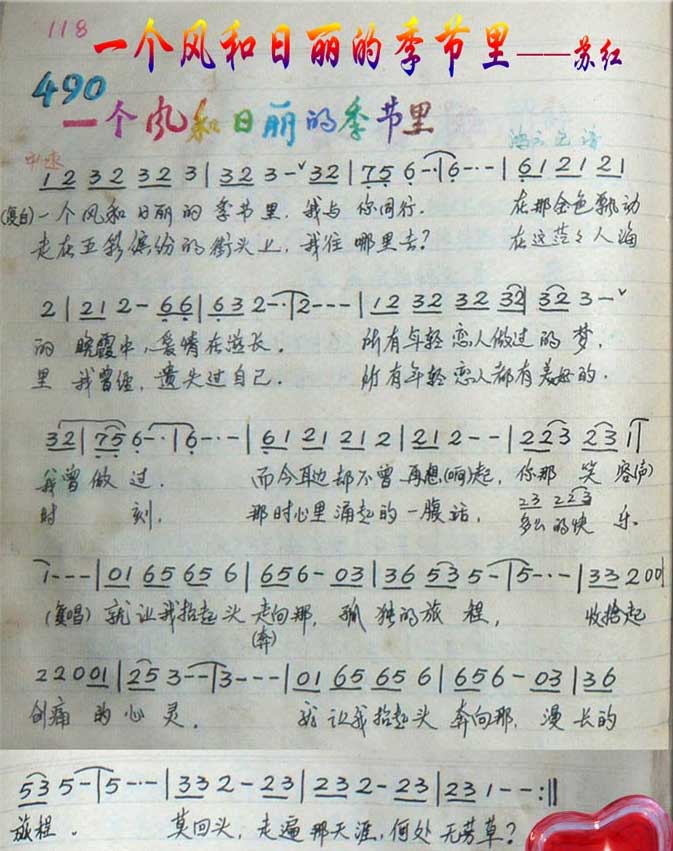 118
一个风和日丽的季节里——苏红
490
一个风和日丽的季节里
中速
1 2 3 2 3 2 3 | 3 2 3 -ˇ 3 2 | 7 5 6 -·- | 6 -·- | 6 1 2 1 2 1
(复白)一个风和日丽的季节里,我与你同行. 在那金色飘动
走在五彩缤纷的街头上,我往哪里去? 在这茫々人海
2 | 2 1 2 - 6 6 | 6 3 2 -·- | 2 - - - | 1 2 3 2 3 2 3 2 | 3 2 3 -ˇ
的 晚霞中,爱情在滋长. 所有年轻恋人做过的梦,
里 我曾经,遗失过自己. 所有年轻恋人都有美好的.
3 2 | 7 5 6 -·- | 6 -·- | 6 1 2 1 2 1 2 | 2 1 2 - - | 2 2 3 2 3 1
我曾做过. 而今耳边却不曾再想(响)起,你那 笑容(声)
2 3 2 2 3
时 刻, 那时心里涌起的一腹话, 多么的快 乐.
1 - - - | 0 1 6 5 6 5 6 | 6 5 6 - 0 3 | 3 6 5 3 5 - | 5 -·- | 3 3 2 0 0 1
(复唱) 就让我抬起头走向那,孤独的旅程, 收拾起
(奔)
2 2 0 0 1 | 2 5 3 - - | 3 - - - | 0 1 6 5 6 5 6 | 6 5 6 - 0 3 | 3 6
创痛 的心灵. 就让我抬起头 奔向那,漫长的
5 3 5 - | 5 -·- | 3 3 2 - 2 3 | 2 3 2 - 2 3 | 2 3 1 - - :||
旅程. 莫回头,走遍那天涯,何处无芳草?